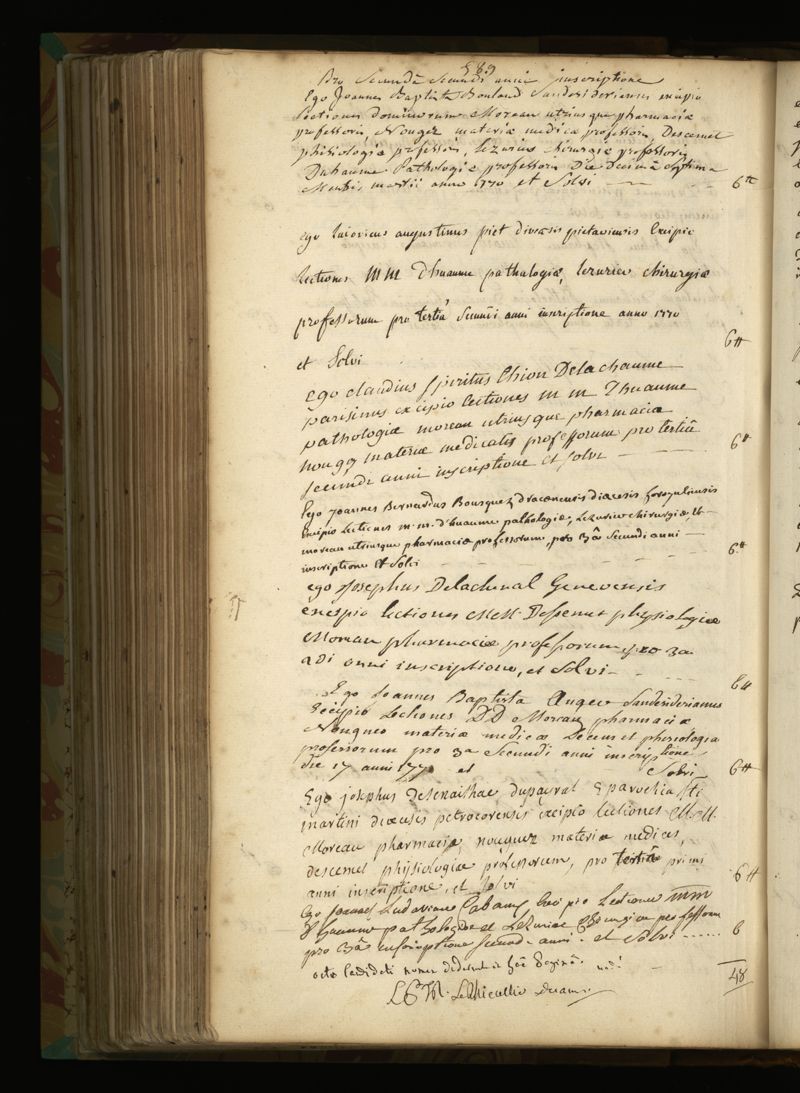 589
Pro Secundâ Secundi anni inscriptione
Ego Joannes Baptista Bouland Sandesiderianus excipio
lectiones dominorum Moreau utriusque pharmaciæ
professoris, Nougez materiæ medicæ professoris, Descemet
phisiologiæ professoris, Lezurier chirurgiæ professoris
Duhaume Pathologiæ professoris Die Decimâ Septima
Mensis martii anno 1770 et Solvi 6tt
ego ludovicus augustinus piet diocesis pictaviensis Excipio
lectiones MM dhuaume pathalogiæ, lezurier chirurgiæ
professorum pro tertiâ secundi anni inscriptione anno 1770
et Solvi 6tt
ego claudius spiritus Chion Delachaume
parisinus excipio lectiones m m Dhuaume
pathologiæ moreau utriusque pharmaciæ
nougez materiæ medicalis professorum pro tertiâ
secundi anni inscriptione et solvi 6tt
Ego joannes Bernardus Bousquez dracenensis diœcesis forojuliensis
Excipio Lectiones m. m. d'huaume pathologiæ, Lezurier chirurgiæ, et
moreau utriusque pharmaciæ professorum, pro 3a Secundi anni
inscriptione et Solvi 6tt
ego Josephus Delachenal Genevensis
excipio lectiones MM. Dessemet physiologiæ
Moreau pharmaciæ professorum pro 3a
2di anni inscriptione, et Solvi 6tt
Ego Joannes Baptista Augeo Sandesiderianus
Excipio Lectiones DD Moreau pharmaciæ
Nougueo materiæ medicæ et phisiologia
professorum pro 3a Secundi anni inscriptione
die 17 anni 1770 et Solvi 6tt
Ego josephus dupayrat E parochia Sti
martini diœcesis petrocorensis excipio lectiones MM.
Moreau pharmaciæ, nouguez materiæ medices,
descemet phijsiologiæ professorum, pro tertiâ primi
anni inscriptione, et solvi 6tt
Ego Joannes Ludovicus Cabany Excipio Lectiones mm
D'huaume pathologiæ et Lezurier Chirurgiæ professorum
pro 3â inscriptione secundi anni. et Solvi ...... 6
octo Candidati nomen dederunt in hac paginâ. 48